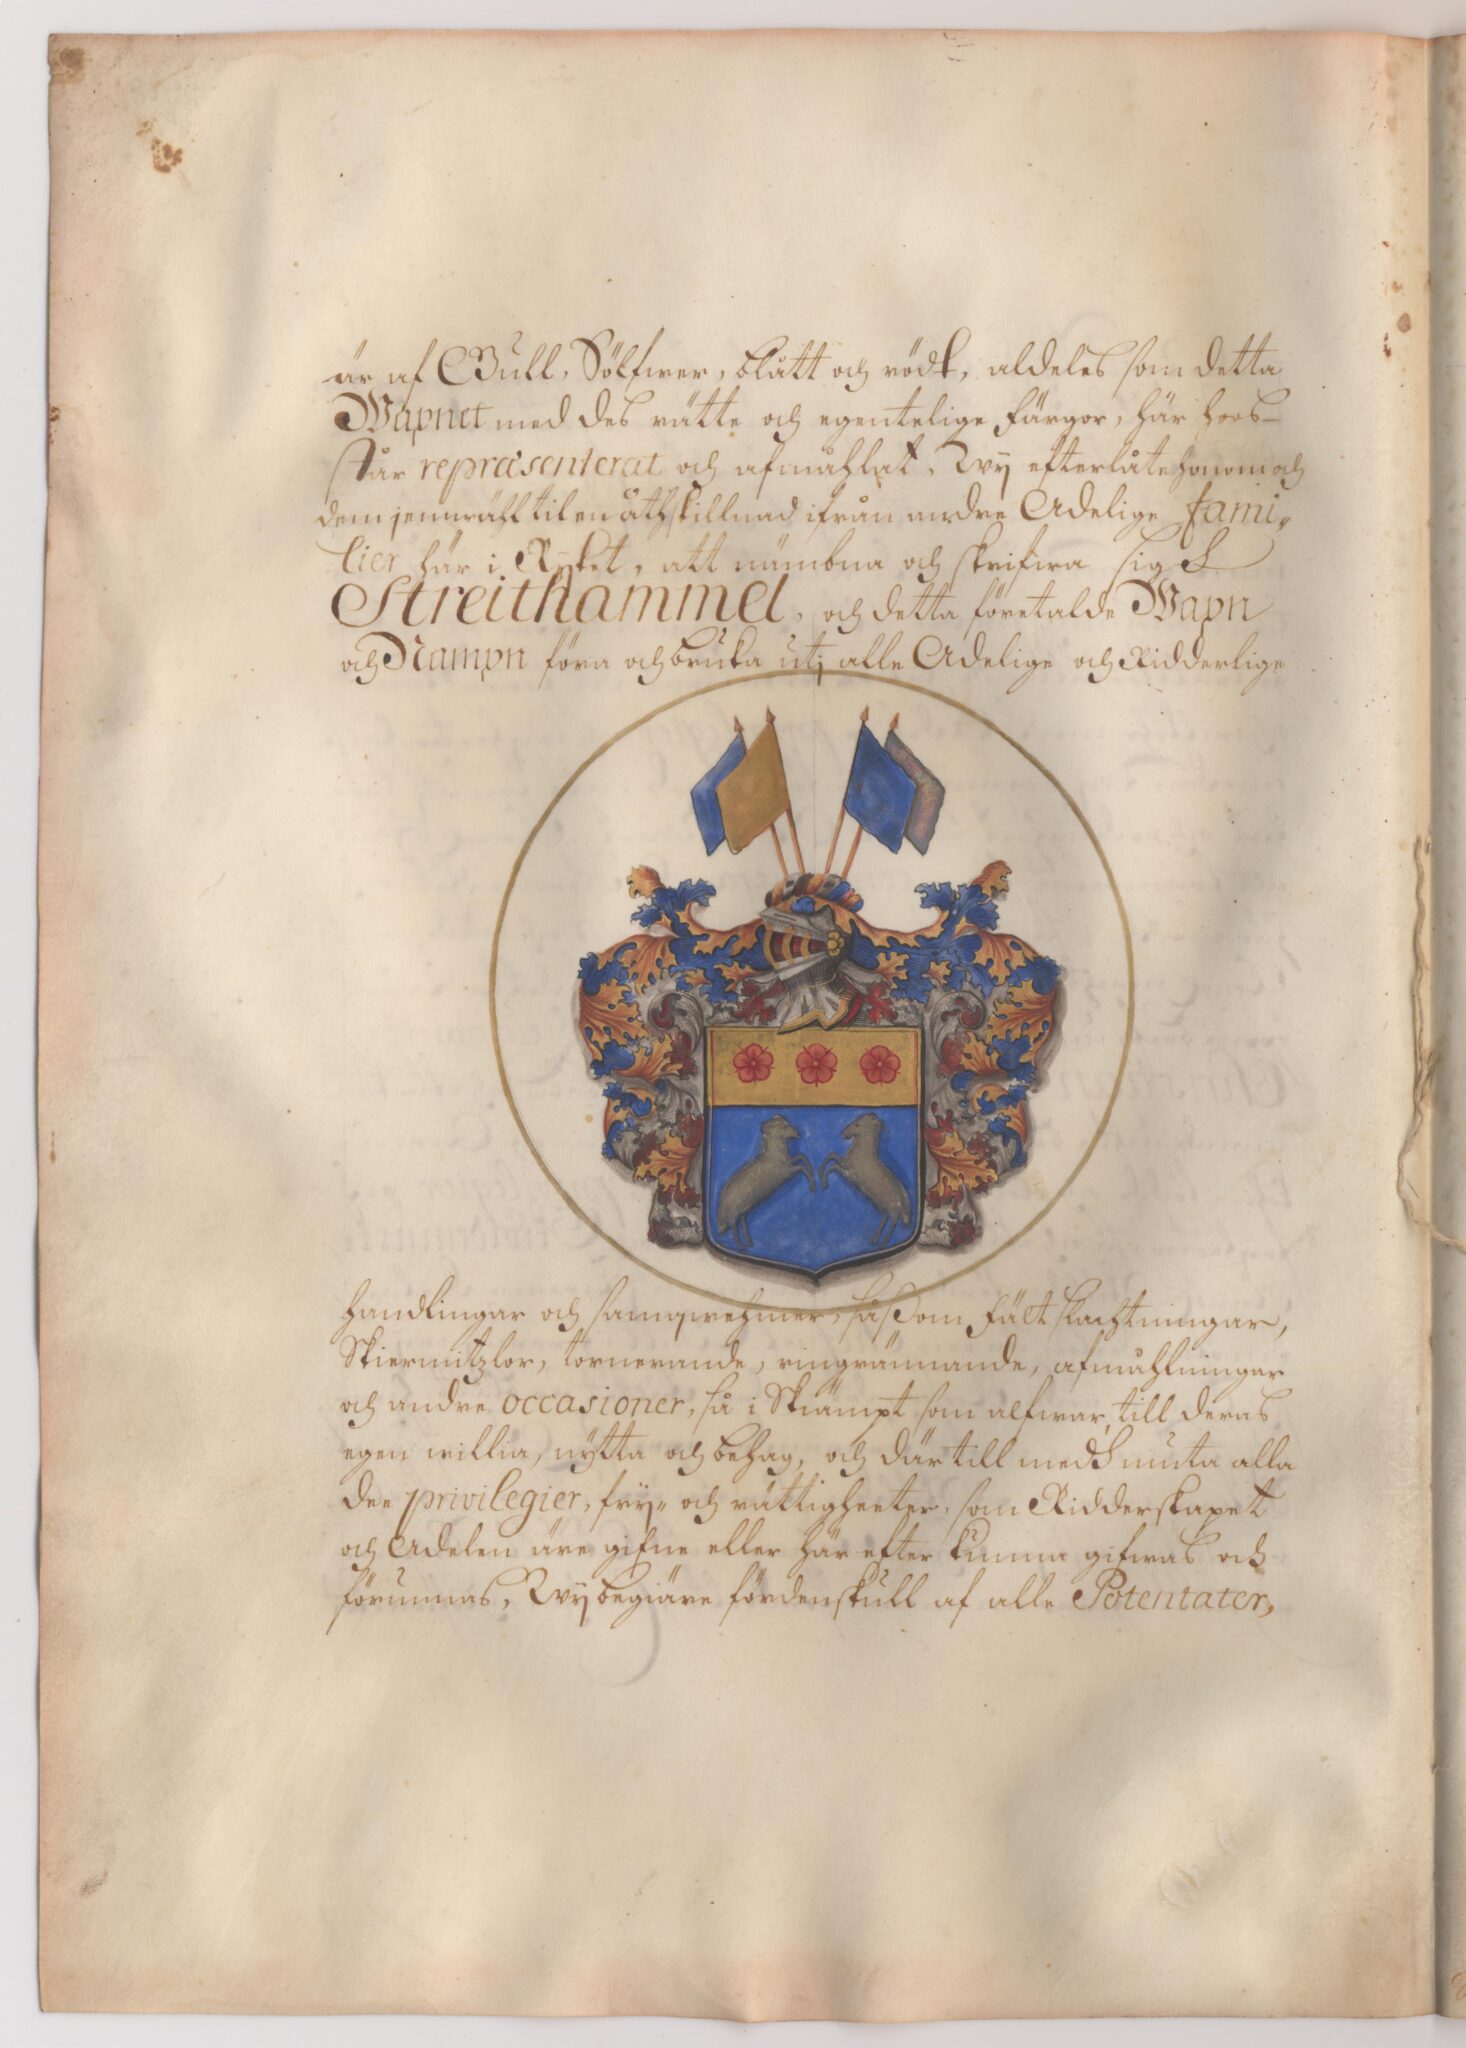 är af Gull, Sölfwer, blått och rödt, aldeles som detta
Wapnet med des rätte och egentelige färgor, här hoos-
står repræsenterat och afmåhlat, Wij efterlåte honom och
dem jemwähl til en åthskillnad ifrån andre Adelige fami„
lier här i Rÿket, att nämbna och skrifwa sig
Streithammel, och detta företalde Wapn
och Nampn föra och bruka utj alle Adelige och Ridderlige
handlingar och samqwehmer, såsom fält slachtningar,
Skiermitzlor, tornerande, ringrännande, afmåhlningar
och andre occasioner, så i Skiämpt som alfwar, till deras
egen willia, nÿtta och behag, och där till medh niuta alla
dee privilegier, frij„ och rättigheeter, som Ridderskapet
och Adelen äre gifne eller här efter kunna gifwas och
förunnas, Wij begiäre fördenskull af alle Potentater,